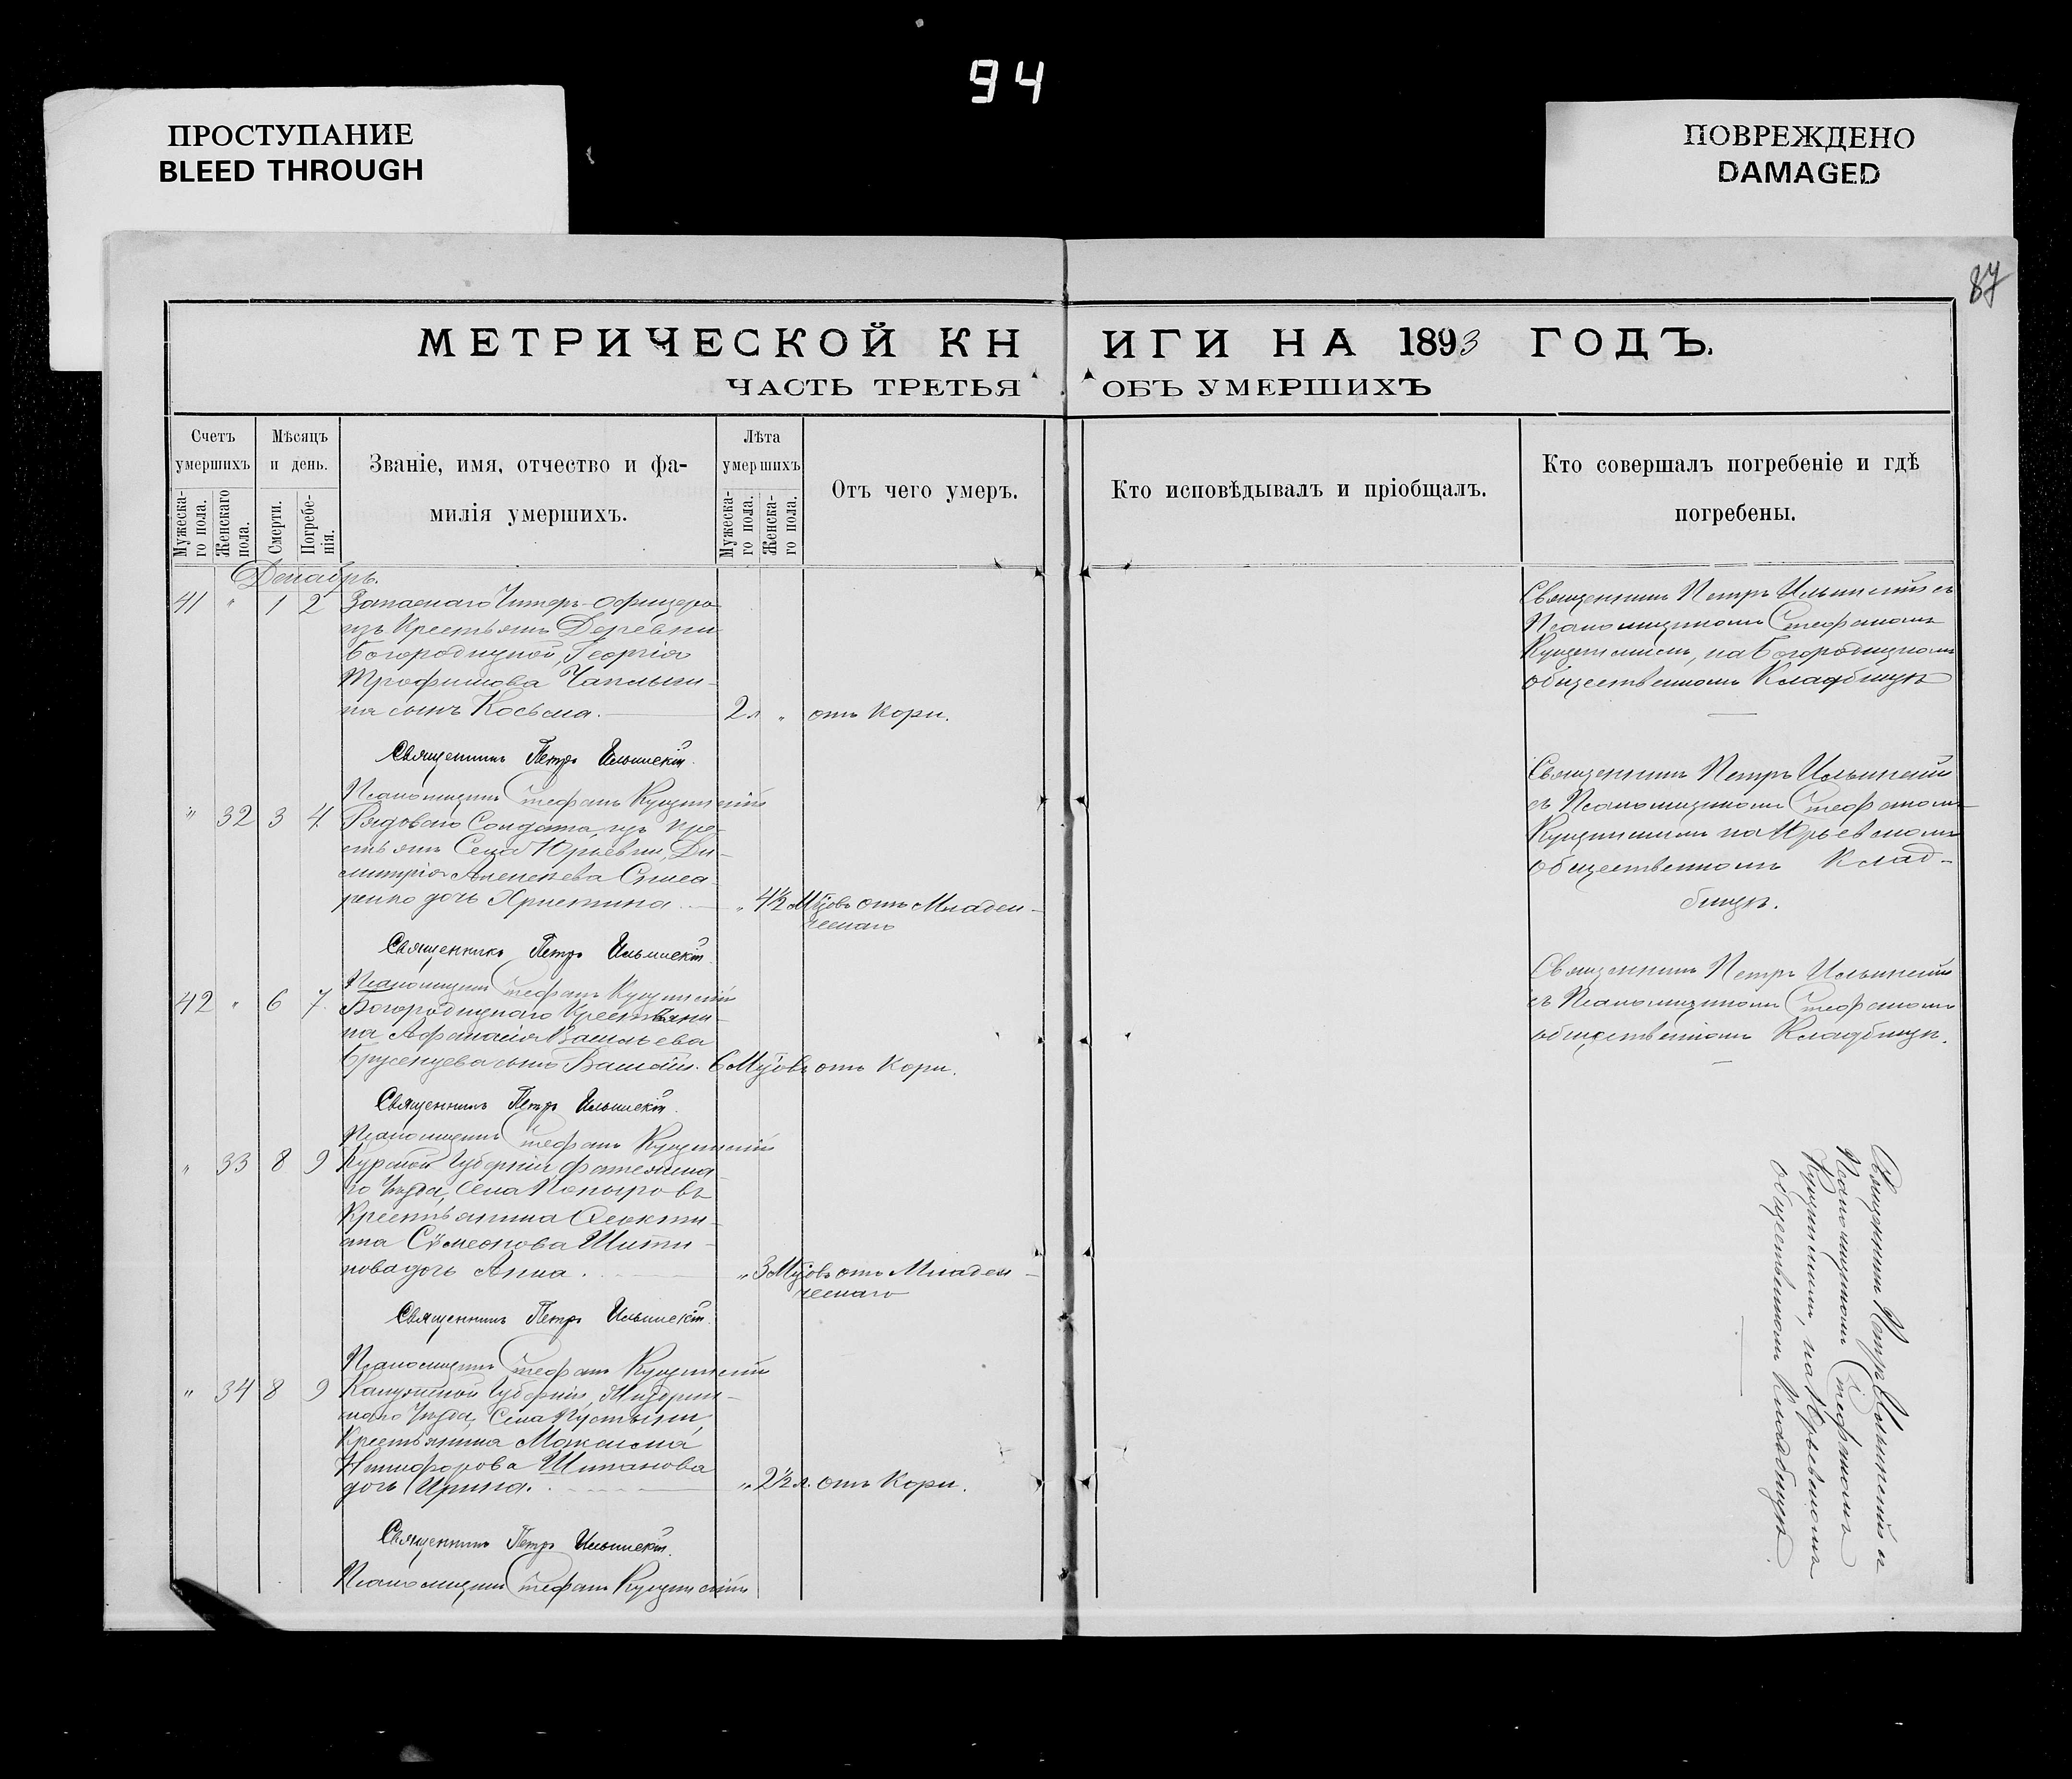 94
ПРОСТУПАНИЕ
BLEED THROUGH
ПОВРЕЖДЕНО
DAMAGED
87
МЕТРИЧЕСКОЙ КНИГИ НА 1893 ГОДЪ.
ЧАСТЬ ТРЕТЬЯ ОБЪ УМЕРШИХЪ
Счетъ умершихъ
Мужеска-го пола.
Женскаго пола.
Мѣсяцъ и день.
Смерти.
Погребе-нія.
Званіе, имя, отчество и фа-
милія умершихъ.
Лѣта умершихъ
Мужеска-го пола.
Женска-го пола.
Отъ чего умеръ.
Кто исповѣдывалъ и пріобщалъ.
Кто совершалъ погребеніе и гдѣ
погребены.
Декабрь.
41 " 1 2 Запаснаго Унтеръ-Офицера
изъ Крестьянъ Деревни
Богородицкой, Георгія
Трофимова Чаплыги-
на сынъ Косьма. 2 л " отъ Кори.
Священникъ Петръ Ильинскій с
Псаломщикомъ Стефаномъ
на Богородицкомъ
общественномъ Кладбищѣ
Священникъ Петръ Ильинскій.
Псаломщикъ Стефанъ
" 32 3 4. Рядоваго Солдата, изъ Кре-
стьянъ Села Юрьевки, Ди-
митрія Алексеева
дочь Христина. " 4½ М цовъ отъ Младен-
ческаго
Священникъ Петръ Ильинскій
съ Псаломщикомъ Стефаномъ
на Юрьевскомъ
общественномъ Клад-
бищѣ.
Священникъ Петръ Ильинскій.
Псаломщикъ Стефанъ
42 " 6 7. Богородицкаго Крестьяни-
на Афанасія Васильева
Брусенцева сынъ Василій. 6 М цовъ отъ Кори.
Священникъ Петръ Ильинскій
съ Псаломщикомъ Стефаномъ
общественномъ Кладбищѣ.
Священникъ Петръ Ильинскій.
Псаломщикъ Стефанъ
" 33 8 9 Курской Губерніи Фатежска-
го Уѣзда, Села
Крестьянина Феокти-
ста Сѵмеонова
дочь Анна. " 3 М цовъ отъ Младен-
ческаго
Священникъ Петръ Ильинскій.
Псаломщикъ Стефанъ
" 34 8 9 Калужской Губерніи,
Уѣзда, Села Пустыни,
Крестьянина Максима
Никифорова
дочь Ирина. " 2½ л. отъ Кори.
Священникъ Петръ Ильинскій.
Псаломщикъ Стефанъ
Священникъ Петръ Ильинскій и
Псаломщикомъ Стефаномъ
на Юрьевскомъ
общественномъ Кладбищѣ